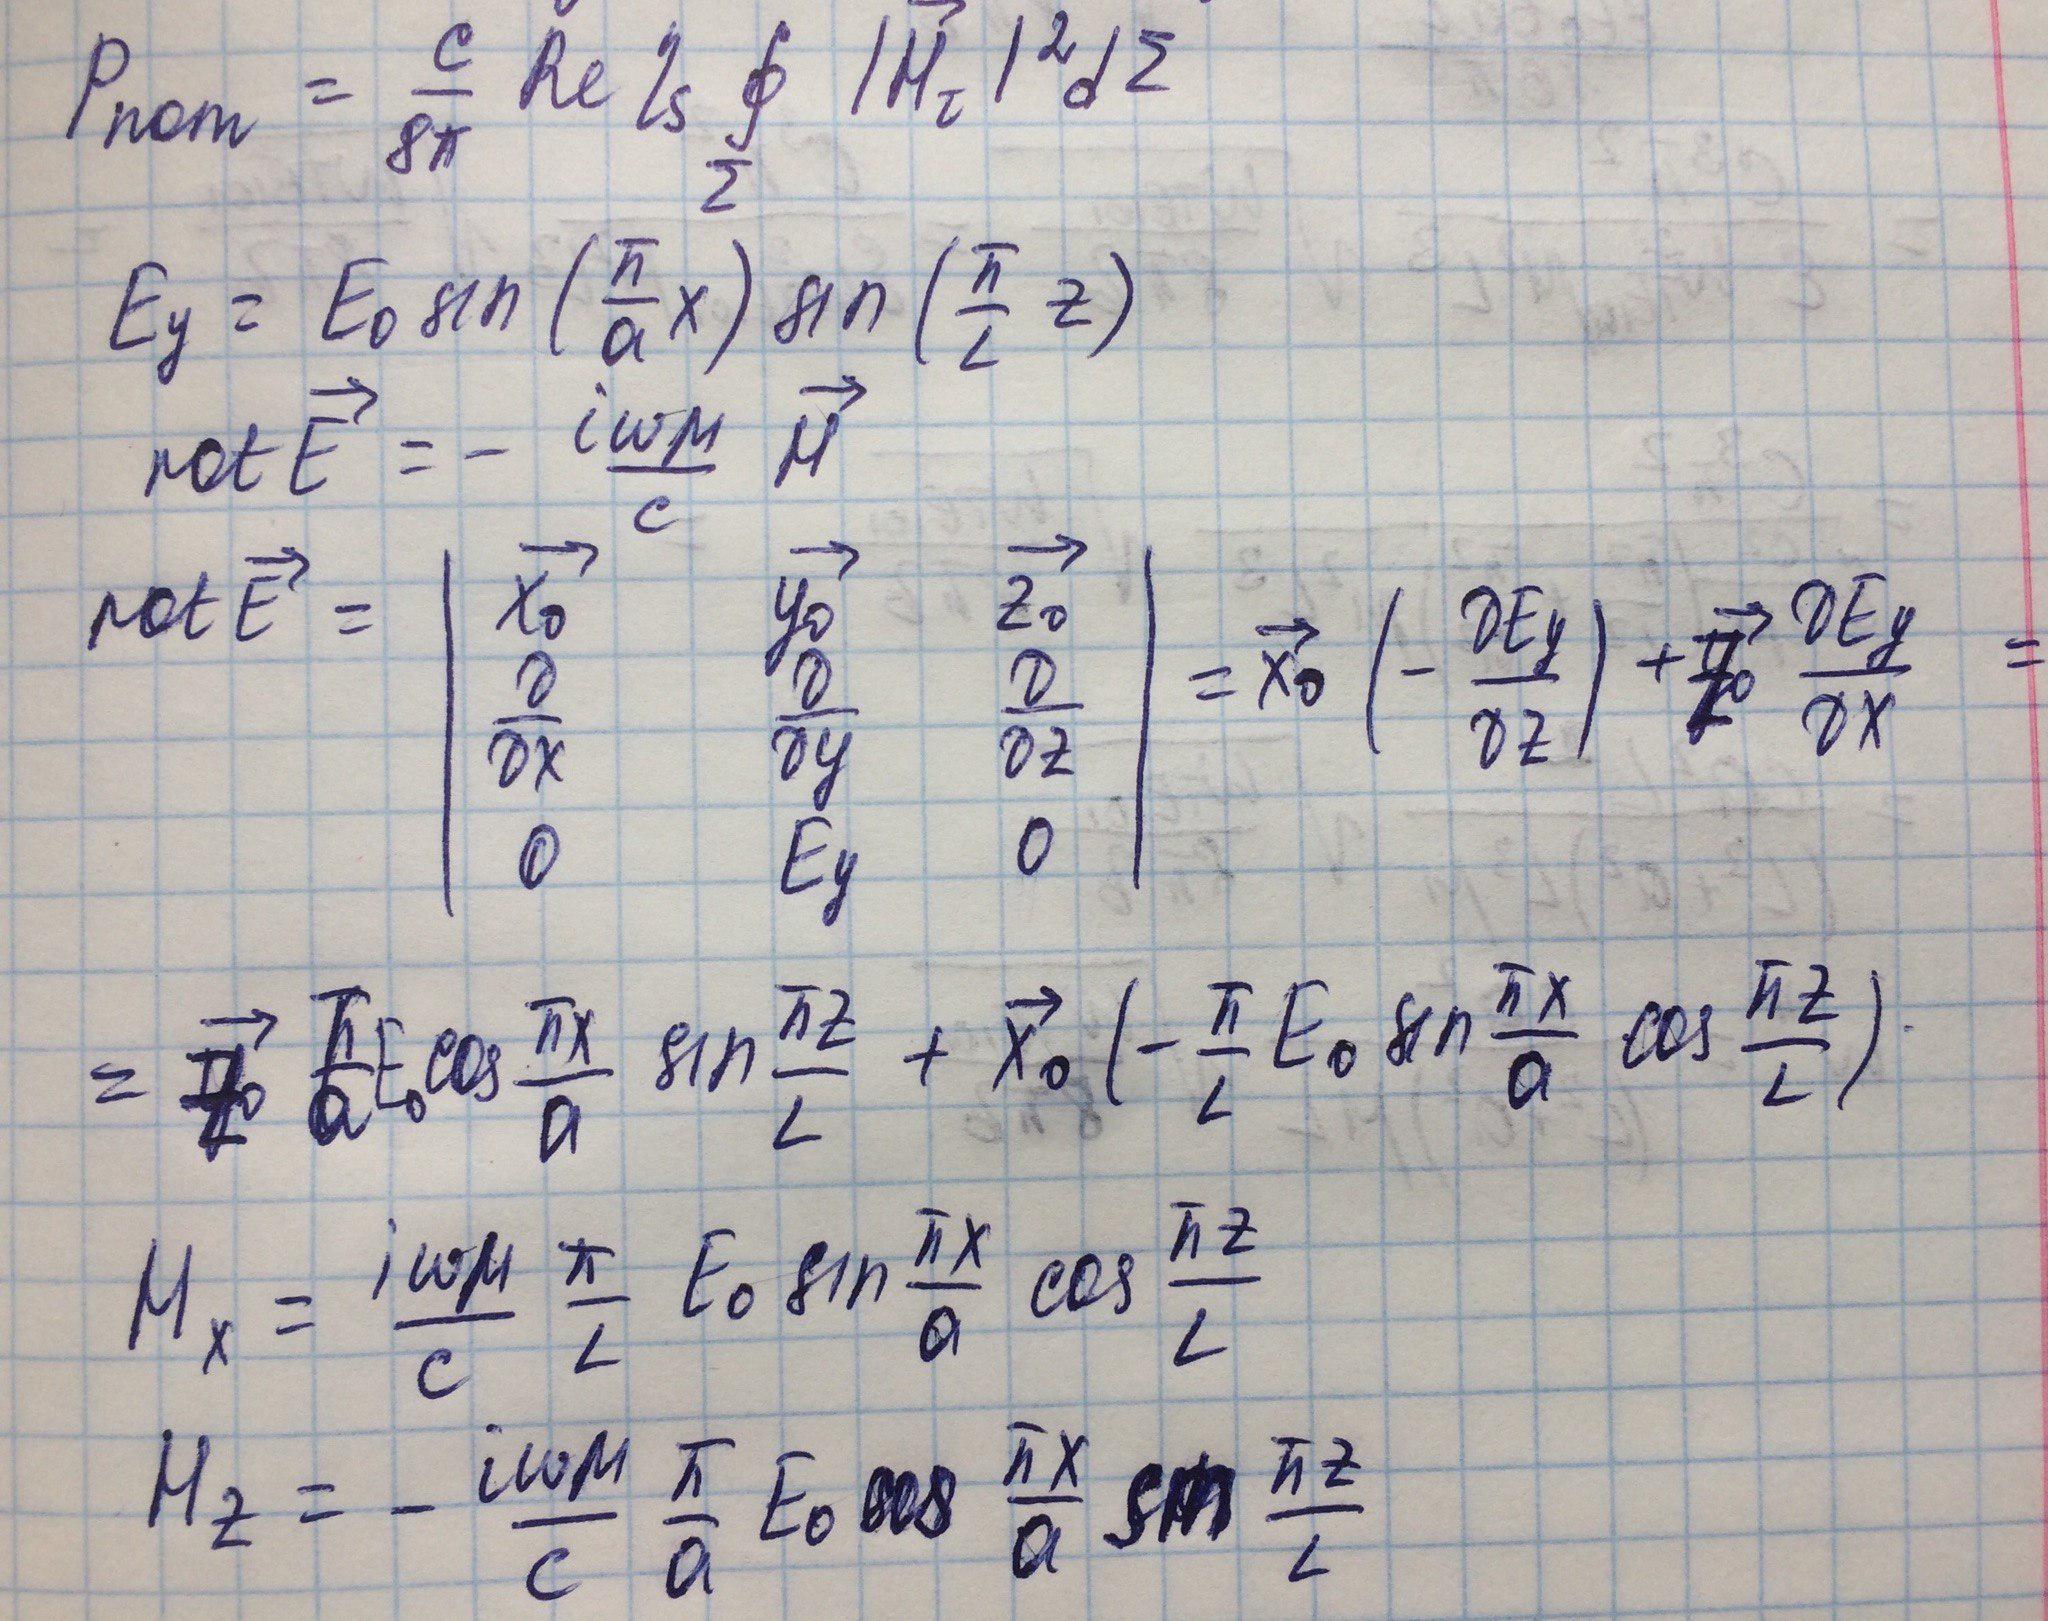 Pпот = c/8π Re ηs ∮Σ |H⃗τ|² dΣ
Ey = E0 sin (π/a x) sin (π/L z)
rot E⃗ = - iωμ/c H⃗
rot E⃗ = | x⃗0 y⃗0 z⃗0 | = x⃗0 (- ∂Ey/∂z) + z⃗0 ∂Ey/∂x =
∂/∂x ∂/∂y ∂/∂z
0 Ey 0
= z⃗0 π/a E0 cos πx/a sin πz/L + x⃗0 (- π/L E0 sin πx/a cos πz/L).
Hx = iωμ/c π/L E0 sin πx/a cos πz/L
Hz = - iωμ/c π/a E0 cos πx/a sin πz/L